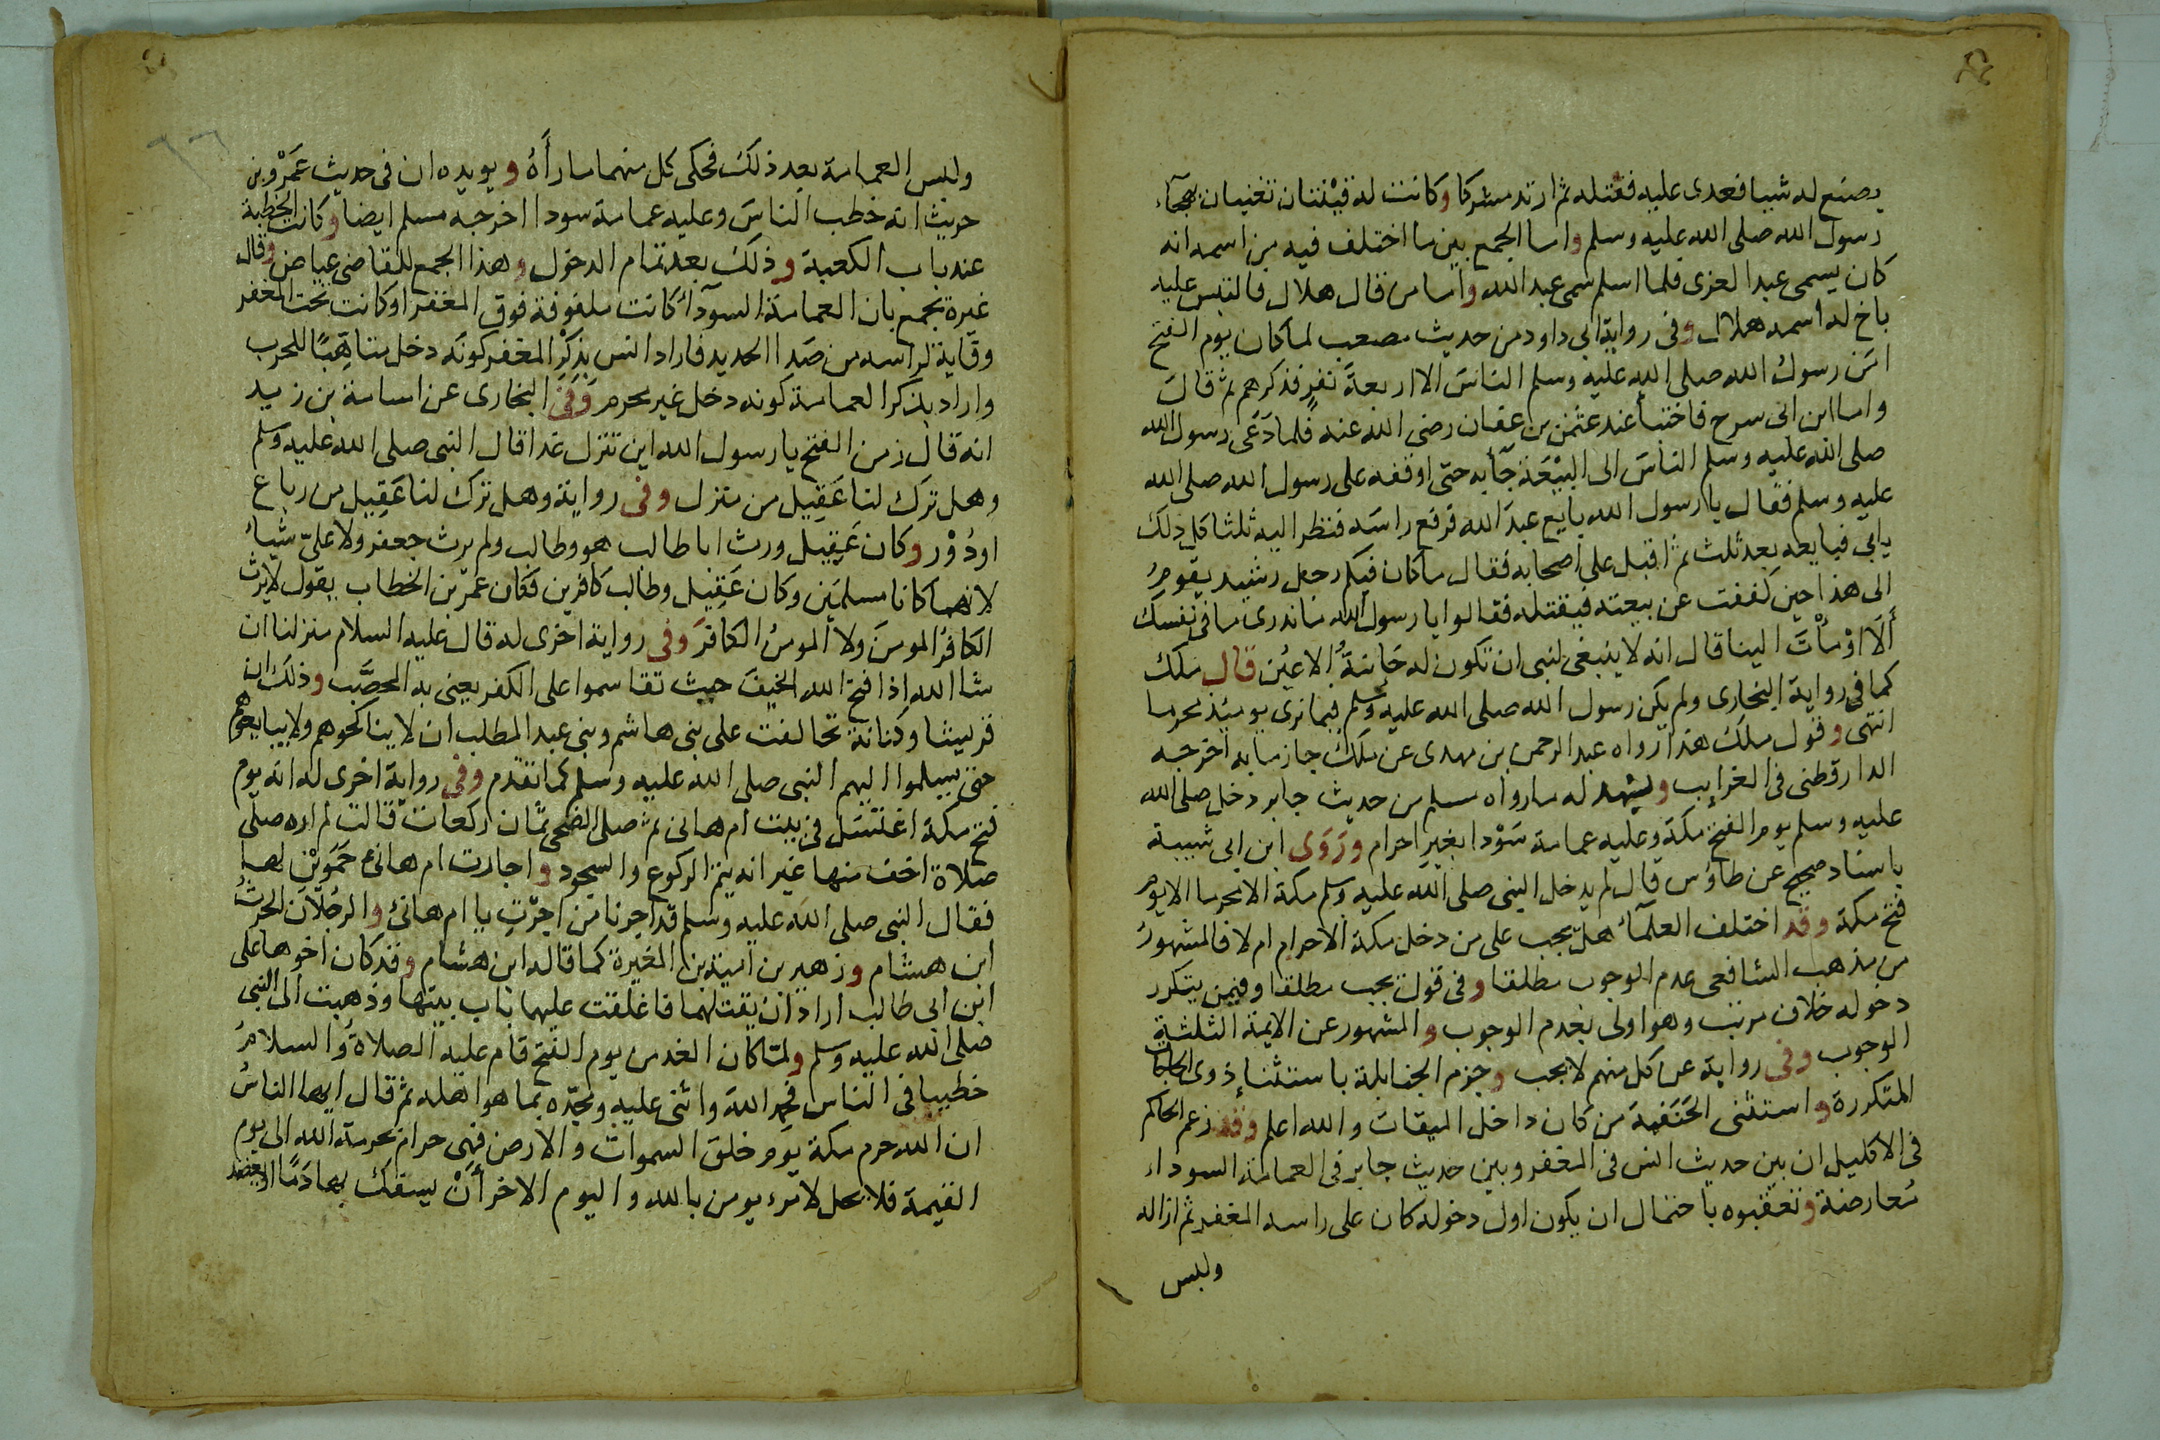 يصنع له شيبا فعدى عليه فقتله ثم ارتد مشركا وكانت له قينتان تغنيان بهجاء
رسول الله صلى الله عليه وسلم واما الجمع بين ما اختلف فيه من اسمه انه
كان يسمى عبد العزى فلما اسلم سمى عبد الله واما من قال هلال فالتبس عليه
باخ له اسمه هلال وفى رواية ابى داود من حديث مصعب لما كان يوم الفتح
امن رسول الله صلى الله عليه وسلم الناس الا اربعة نفر فذكرهم ثم قال
واما ابن ابى سرح فاختبأ عند عثمن بن عفان رضى الله عنه فلما دعى رسول الله
صلى الله عليه وسلم الناس الى البيعة جآ به حتى اوقفه على رسول الله صلى الله
عليه وسلم فقال يا رسول الله بايع عبد الله فرفع راسه فنظر اليه ثلثا كل ذلك
يابى فبايعه بعد ثلث ثم اقبل على اصحابه فقال ما كان فيكم رجل رشيد يقوم
الى هذا حين كففت عن بيعته فيقتله فقالوا يا رسول الله ما ندرى ما فى نفسك
ألا اومأت الينا قال انه لا ينبغى لنبى ان تكون له خائنة الاعين قال ملك
كما فى رواية البخارى ولم يكن رسول الله صلى الله عليه وسلم فيما نرى يومئذ محرما
انتهى وقول ملك هذا رواه عبد الرحمن بن مهدى عن ملك جازما به اخرجه
الدارقطنى فى الغرايب ويشهد له ما رواه مسلم من حديث جابر دخل صلى الله
عليه وسلم يوم الفتح مكة وعليه عمامة سودا بغير احرام وروى ابن ابى شيبة
باسناد صحيح عن طاؤس قال لم يدخل النبى صلى الله عليه وسلم مكة الا محرما الا يوم
فتح مكة وقد اختلف العلمآء هل يجب على من دخل مكة الاحرام ام لا فالمشهور
من مذهب الشافعى عدم الوجوب مطلقا وفى قول يجب مطلقا وفيمن يتكرر
دخوله خلاف مرتب وهو اولى بعدم الوجوب والمشهور عن الايمة الثلثة
الوجوب وفى رواية عن كل منهم لا يجب وجزم الحنابلة باستثنا ذوى الحاجات
المتكررة واستثنى الحنفية من كان داخل الميقات والله اعلم وقد زعم الحاكم
فى الاكليل ان بين حديث انس فى المغفر وبين حديث جابر فى العمامة السوداء
معارضة وتعقبوه باحتمال ان يكون اول دخوله كان على راسه المغفر ثم ازاله
ولبس
ولبس العمامة بعد ذلك فحكى كل منهما ما رأه ويويده ان فى حديث عمرو بن
حريث انه خطب الناس وعليه عمامة سودا اخرجه مسلم ايضا وكانت الخطبة
عند باب الكعبة وذلك بعد تمام الدخول وهذا الجمع للقاضى عياض وقال
غيره يجمع بان العمامة السودآء كانت ملفوفة فوق المغفر او كانت تحت المغفر
وقاية لراسه من صدا الحديد فاراد انس بذكر المغفر كونه دخل متاهبا للحرب
واراد بذكر العمامة كونه دخل غير محرم وفى البخارى عن اسامة بن زيد
انه قال زمن الفتح يا رسول الله اين تنزل غدا قال النبى صلى الله عليه وسلم
وهل ترك لنا عقيل من منزل وفى رواية وهل ترك لنا عقيل من رباع
او دور وكان عقيل ورث ابا طالب هو وطالب ولم يرث جعفر ولا على شيأ
لانهما كانا مسلمين وكان عقيل وطالب كافرين فكان عمر بن الخطاب يقول لا يرث
الكافر المومن ولا المومن الكافر وفى رواية اخرى له قال عليه السلام منزلنا ان
شا الله اذا فتح الله الخيف حيث تقاسموا على الكفر يعنى به المحصب وذلك ان
قريشا وكنانة تحالفت على بنى هاشم وبنى عبد المطلب ان لا يناكحوهم ولا يبايعوهم
حتى يسلموا اليهم النبى صلى الله عليه وسلم كما تقدم وفى رواية اخرى له انه يوم
فتح مكة اغتسل فى بيت ام هانى ثم صلى الضحى ثمان ركعات قالت لم اره صلى
صلاة اخف منها غير انه يتم الركوع والسجود واجارت ام هانى حموين لها
فقال النبى صلى الله عليه وسلم قد اجرنا من اجرت يا ام هانى والرجلان الحرث
ابن هشام وزهير بن امية بن المغيرة كما قاله ابن هشام وقد كان اخوها على
ابن ابى طالب اراد ان يقتلهما فاغلقت عليهما باب بيتها وذهبت الى النبى
صلى الله عليه وسلم ولما كان الغد من يوم الفتح قام عليه الصلاة والسلام
خطيبا فى الناس فحمد الله واثنى عليه ومجده بما هو اهله ثم قال ايها الناس
ان الله حرم مكة يوم خلق السموات والارض فهى حرام بحرمة الله الى يوم
القيمة فلا يحل لامرء يومن بالله واليوم الاخر أن يسفك بها دما او يعضد